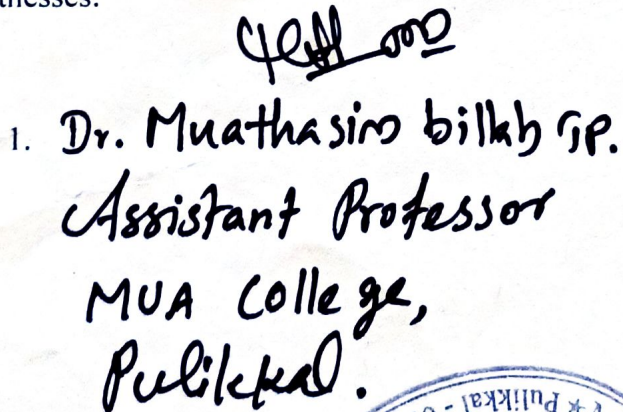 nesses:
1. Dr. Muathasim billah TP.
Assistant Professor
MUA College,
Pulikkal.
Pulikkal